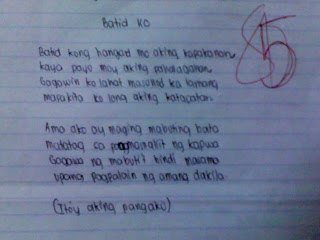 Batid ko
85
Batid kong hangad mo aking kapakanan
kaya payo moy aking pahalagahan
Gagawin ko lahat masunod ka lamang
masakita ko lang aking katacatan.
Ama ako ay maging mabuting bata
matatag sa ng kapwa
Gagawa ng mabuti hindi masama
upang pagpalain ng amang dakila.
(Ito'y aking pangako)